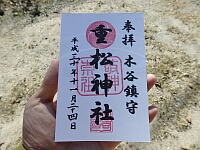 奉拝 木谷鎮守
重松神社
平成三十年十一月二十四日